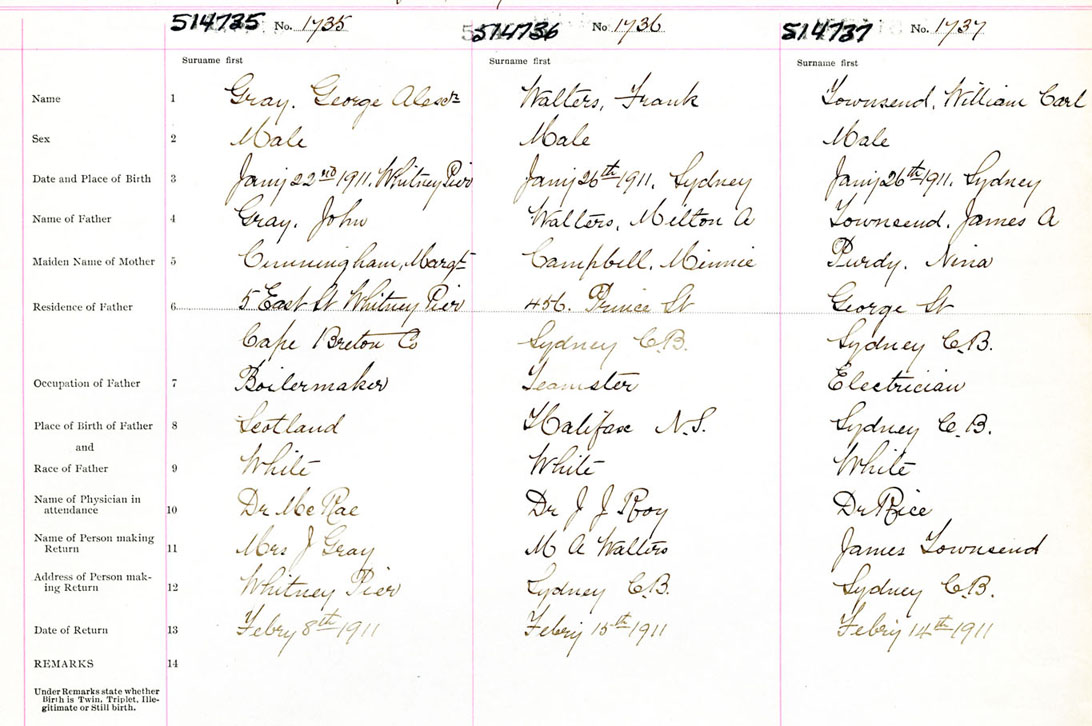 514735 No. 1735 514736 No 1736 514737 No. 1737
Surname first Surname first Surname first
Name 1 Gray, George Alexdr Walters, Frank Townsend, William Carl
Sex 2 Male Male Male
Date and Place of Birth 3 Jany 22nd 1911. Whitney Pier Jany 26th 1911. Sydney Jany 26th 1911. Sydney
Name of Father 4 Gray, John Walters, Milton A Townsend, James A
Maiden Name of Mother 5 Cunningham, Margt Campbell, Minnie Purdy, Nina
Residence of Father 6 5 East St Whitney Pier 456. Prince St George St
Cape Breton Co Sydney C.B. Sydney C.B.
Occupation of Father 7 Boilermaker Teamster Electrician
Place of Birth of Father 8 Scotland Halifax N.S. Sydney C.B.
and
Race of Father 9 White White White
Name of Physician in
attendance 10 Dr McRae Dr J J Roy Dr Rice
Name of Person making
Return 11 Mrs J Gray M A Walters James Townsend
Address of Person mak-
ing Return 12 Whitney Pier Sydney C.B. Sydney C.B.
Date of Return 13 Febry 8th 1911 Febry 15th 1911 Febry 14th 1911
REMARKS 14
Under Remarks state whether
Birth is Twin, Triplet, Ille-
gitimate or Still birth.